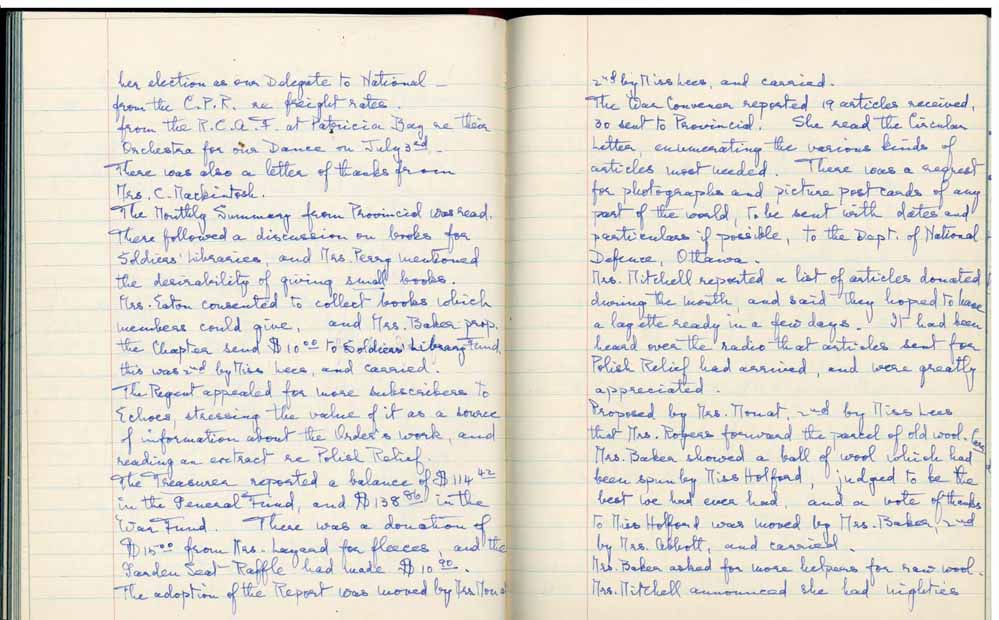 her election as our Delegate to National –
from the C.P.R. re freight rates.
from the R.C.A.F. at Patricia Bay re their
Orchestra for our Dance on July 3rd –
There was also a letter of thanks from
Mrs. C. Mackintosh.
The Monthly Summary from Provincial was read.
There followed a discussion on books for
Soldiers' Libraries, and Mrs. Perry mentioned
the desirability of giving small books.
Mrs. Eaton consented to collect books which
members could give, and Mrs. Baker prop.
the Chapter send $10.00 to Soldiers' Library Fund,
this was 2nd by Miss Lees, and carried.
The Regent appealed for more subscribers to
Echoes, stressing the value of it as a source
of information about the Order's work, and
reading an extract re Polish Relief.
The Treasurer reported a balance of $114.42
in the General Fund, and $138.86 in the
War Fund. There was a donation of
$15.00 from Mrs. Layard for fleeces, and the
Garden Seat Raffle had made $10.90.
The adoption of the Report was moved by Mrs Mouat
2nd by Miss Lees, and carried.
The War Convener reported 19 articles received,
30 sent to Provincial. She read the Circular
Letter, enumerating the various kinds of
articles most needed. There was a request
for photographs and picture post cards of any
part of the world, to be sent with dates and
particulars if possible, to the Dept. of National
Defence, Ottawa.
Mrs. Mitchell reported a list of articles donated
during the month, and said they hoped to have
a layette ready in a few days. It had been
heard over the radio that articles sent for
Polish Relief had arrived, and were greatly
appreciated.
Proposed by Mrs. Mouat, 2nd by Miss Lees
that Mrs. Rogers forward the parcel of old wool.
Mrs. Baker showed a ball of wool which had
been spun by Miss Holford, judged to be the
best we had ever had, and a vote of thanks
to Miss Holford was moved by Mrs. Baker, 2nd
by Mrs. Abbott, and carried.
Mrs. Baker asked for more helpers for raw wool.
Mrs. Mitchell announced she had nighties